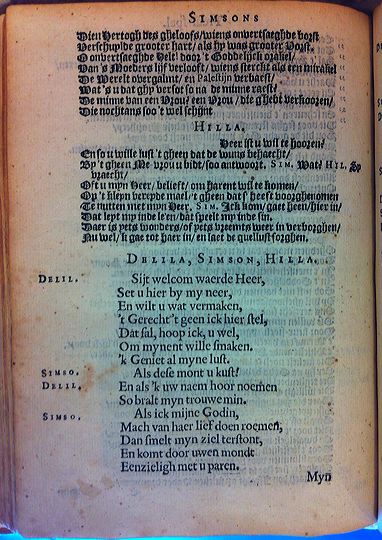 SIMSONS
Dien Hertogh des gheloofs/ wiens onvertsaeghde borst
Verschuylde grooter hart/ als hy was grooter Vorst.
O onvertsaeghde Vele! door 't Goddelijck orakel/
Van 's Moeders lijf verlooft/ wiens sterckt als een mirakel
De Werelt overgalmt/ en Palestijn verbaest/
Wat 's u dat ghy versot so na de minne raest?
De minne van een Vrou? een Vrou/ die ghebt verkooren/
Die nochtans soo 't wel schijnt
HILLA.
Heer ist u wil te hooren?
En so u wille lust 't gheen dat de uwus behaecht/
By 't gheen Me vrou u bidt/ soo antwoort. SIM. Wat? HIL. Sy
vraecht/
Oft u myn Heer/ belieft/ om haren t wil te komen/
Op 't kleyn bereyde mael/ 't gheen dat s' heeft voorghenomen
Te nutten met myn Heer. SIM. Ick kom/ gaet heen/ hier in/
Dat lept my inde le en/ dat speelt my inde sin.
Daer is yets wonders/ of yets vreemts weer in verborghen/
Nu wel/ k gae tot haer in/ en laet de quellust sorghen.
DELILA, SIMSON, HILLA.
DELIL. Sijt welcom waerde Heer,
Set u hier by my neer,
En wilt u wat vermaken,
't Gerecht 't geen ick hier stel,
Dat sal, hoop ick, u wel,
Om mynent wille smaken.
'k Geniet al myne lust.
SIMSO. Als dese mont u kust?
DELIL. En als 'k uw naem hoor noemen
So bralt myn trouwe min.
SIMSO. Als ick mijne Godin,
Mach van haer lief doen roemen,
Dan smelt myn ziel terstont,
En komt door uwen mondt
Eenzieligh met u paren.
Myn